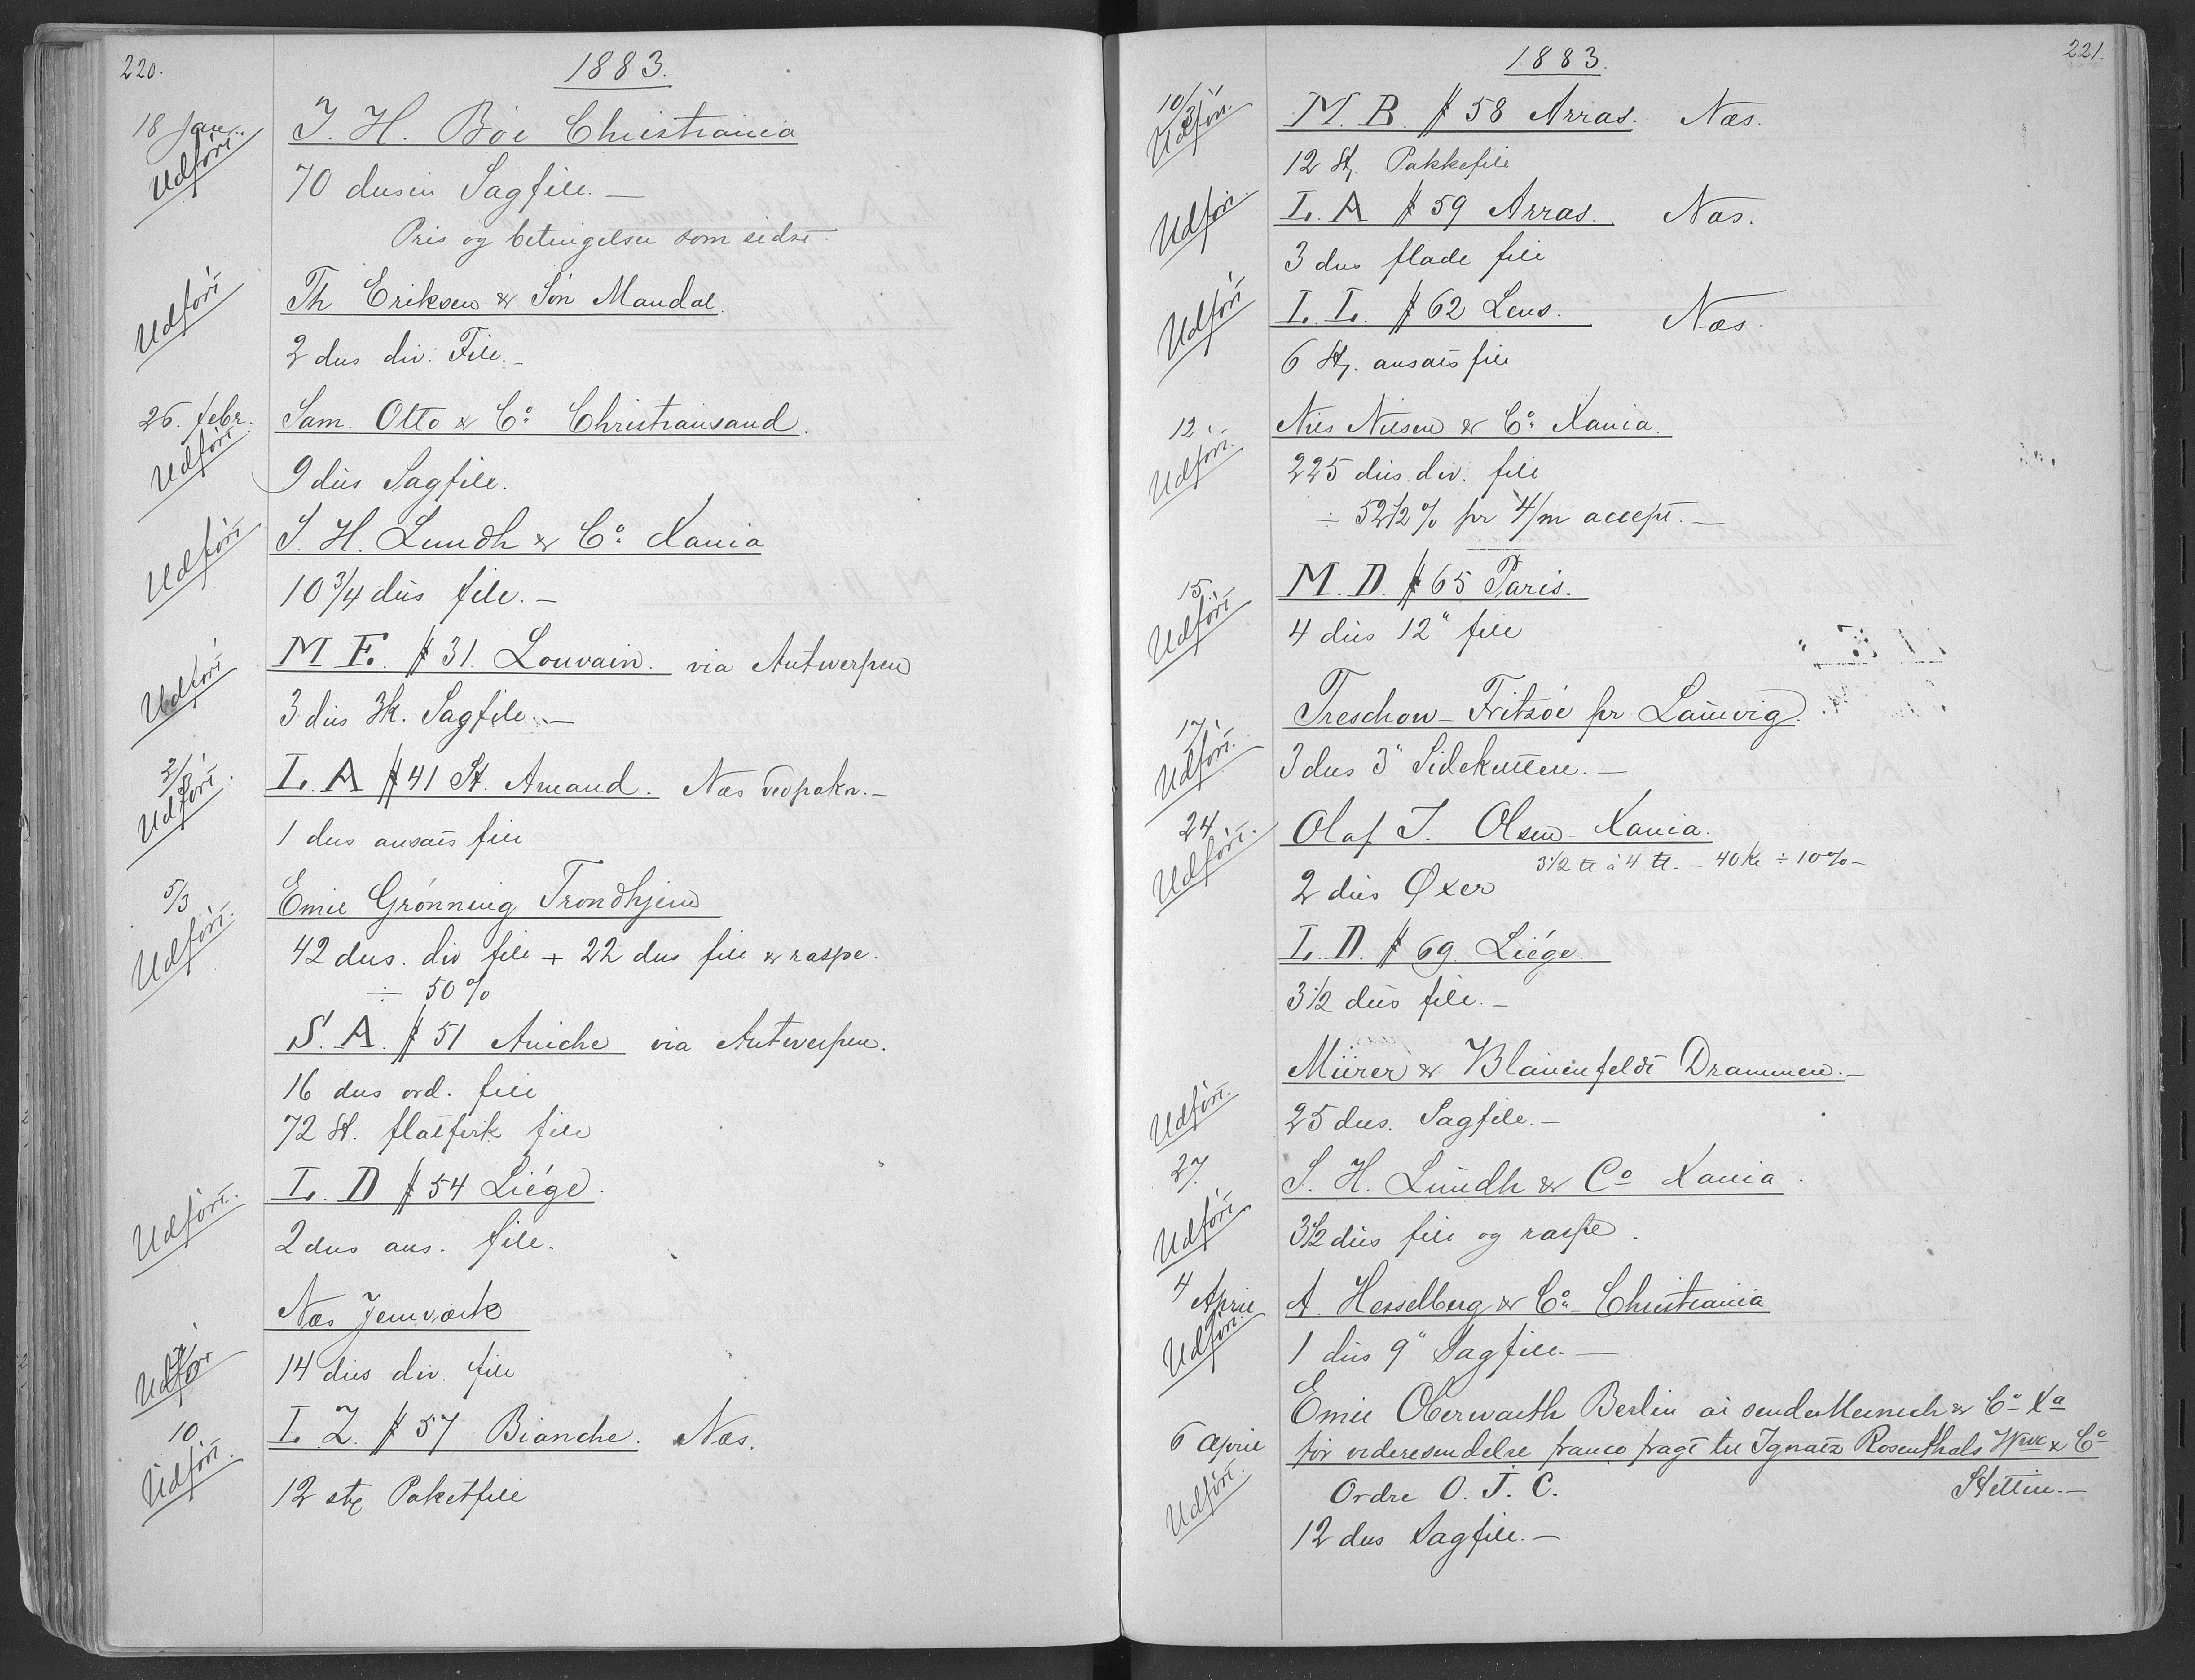 220.
1883.
18 Jan.
Udført
J. H. Böe Christiania
70 dusin Sagfile. —
Pris og betingelser som sidst.
Udført
Th Eriksen & Sön Mandal.
2 dus div. File. —
26. febr.
Udført
Sam. Otto & Co Christiansand.
9 dus Sagfile.
Udført
S. H. Lundh & Co Xania
10 3/4 dus file. —
Udført
M E. # 31. Louvain. via Antwerpen
3 dus Sagfile. —
2/3
Udført.
L. A # 41 St. Amand. Næs —
1 dus ansats file
5/3
Udført.
Emil Grønning Trondhjem
42 dus. div file + 22 dus file & raspe.
÷ 50 %
S. A. # 51 Aniche via Antwerpen.
16 dus ord. file
72 St. flatfirk file
Udført.
L. D # 54 Liége.
2 dus ans. file.
Næs Jernværk
Udført
14 dus div. file
10.
Udført.
L. Z. # 57 Bianche. Næs.
12 stk Paketfile
221.
1883.
10/3
Udført.
M. B. # 58 Arras. Næs.
12 St. Pakkefile
Udført.
L. A # 59 Arras. Næs.
3 dus flade file
Udført
L. L. # 62 Lens. Næs.
6 St. ansats file
12.
Udført.
Nils Nilsen & Co Xania.
225 dus div. file
÷ 52 1/2 % pr 4/m accept. —
15.
Udført
M. D. # 65 Paris.
4 dus 12" file
17.
Udført.
Treschow - Fritzöe pr Laurvig.
3 dus 3" Sidekuttere. —
24.
Udført.
Olaf J. Olsen - Xania.
3 1/2 ℔ à 4 ℔. — 40 Kr ÷ 10 % —
2 dus Øxer
L. D. # 69. Liége.
3 1/2 dus file. —
Mürer & Blauenfeldt Drammen. —
Udført.
25 dus. Sagfile. —
27.
S. H. Lundh & Co Xania.
Udført
3 1/2 dus file og raspe.
4 April
A. Hesselberg & Co - Christiania
Udført.
1 dus 9" Sagfile. —
Emil Oberwarth Berlin at sende Meinich & Co Xa
6 April
for videresendelse franco fragt til Ignatz Rosenthals Wwe & Co
Udført.
Ordre O. J. C. Stettin. —
12 dus Sagfile. —